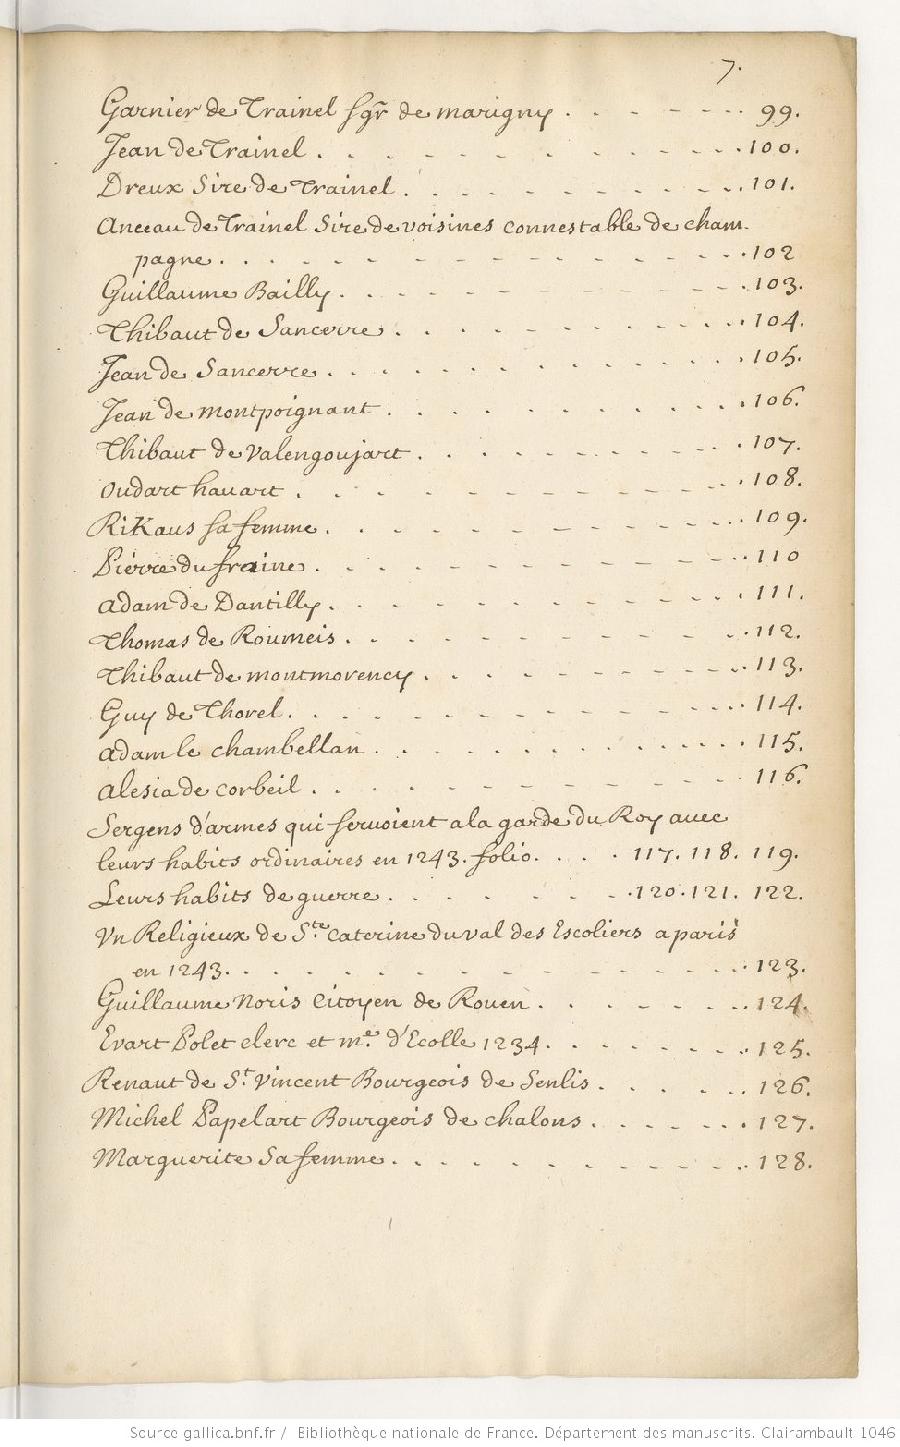 7.
Garnier de Trainel sgr de marigny . . . . . . . 99.
Jean de Trainel . . . . . . . . . . . . 100.
Dreux Sire de Trainel . . . . . . . . . . 101.
Anceau de Trainel Sire de voisines connestable de cham-
pagne . . . . . . . . . . . . . . 102
Guillaume Bailly . . . . . . . . . . . 103.
Thibaut de Sancerre . . . . . . . . . . 104.
Jean de Sancerre . . . . . . . . . . . 105.
Jean de montpoignant . . . . . . . . . . 106.
Thibaut de valengoujart . . . . . . . . . 107.
oudart havart . . . . . . . . . . . . 108.
RiKaus sa femme . . . . . . . . . . . 109.
Pierre du fraine . . . . . . . . . . . 110
Adam de Dantilly . . . . . . . . . . . 111.
Thomas de Roumeis . . . . . . . . . . 112.
Thibaut de montmorency . . . . . . . . . 113.
Guy de Thorel . . . . . . . . . . . . 114.
adam le chambellan . . . . . . . . . . 115.
alesia de corbeil . . . . . . . . . . . 116.
Sergens d'armes qui servoient a la garde du Roy avec
leurs habits ordinaires en 1243. folio. . . . 117. 118. 119.
Leurs habits de guerre . . . . . . . 120. 121. 122.
Vn Religieux de Ste. Caterine du val des Escoliers a paris
en 1243. . . . . . . . . . . . . . 123.
Guillaume Noris Citoyen de Rouen . . . . . . . 124.
Evart Polet clerc et me. d'Ecolle 1234. . . . . . . 125.
Renaut de St. Vincent Bourgeois de Senlis . . . . . 126.
Michel Papelart Bourgeois de chalons . . . . . . 127.
Marguerite Sa femme . . . . . . . . . . 128.
Source gallica.bnf.fr / Bibliothèque nationale de France. Département des manuscrits. Clairambault 1046